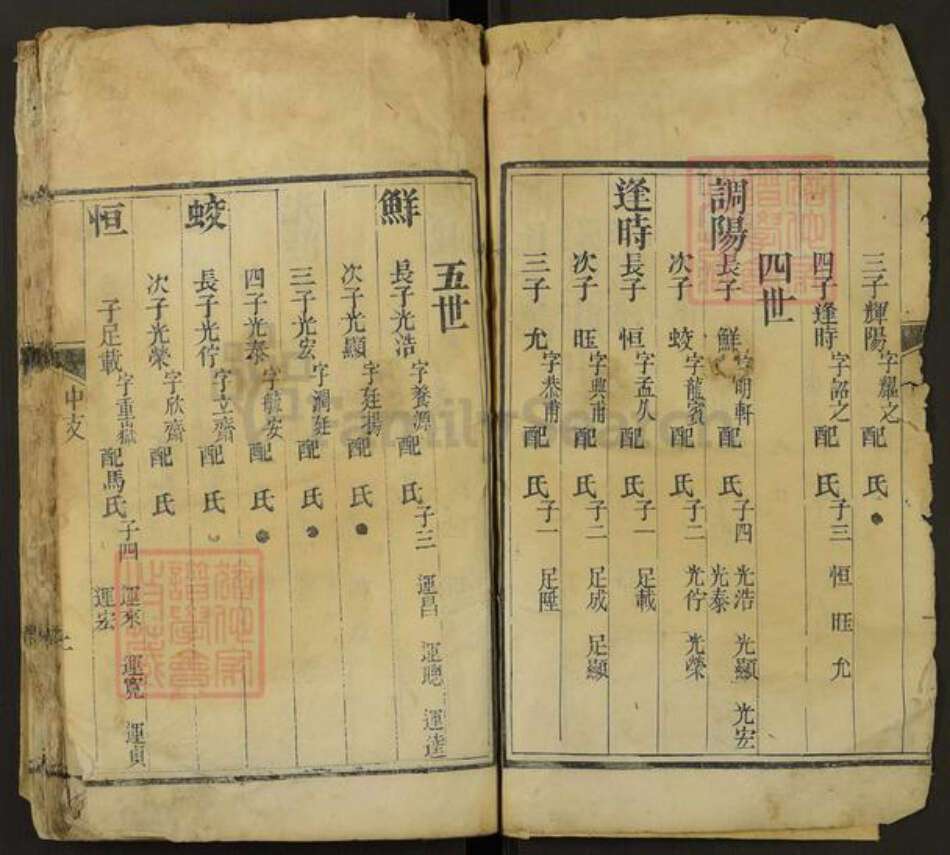 三子輝陽字耀之配 氏
四子逢時字詔之配 氏子三 恒 旺 允
四世
調陽
長子 鮮字明軒配 氏子四 光浩 光顯 光宏 光泰
次子 蛟字龍賓配 氏子二 光佇 光榮
逢時
長子 恒字孟久配 氏子一 足載
次子 旺字興甫配 氏子二 足成 足顯
三子 允字恭甫配 氏子一 足陞
五世
鮮
長子光浩字養源配 氏子三 運昌 運聰 運達
次子光顯字廷揚配 氏
三子光宏字潤廷配 氏
四子光泰字毓安配 氏
蛟
長子光佇字立齋配 氏
次子光榮字欣齋配 氏
恒
子足載字重嶽配馬氏子四 運乘 運寬 運貞 運宏
中支
FamilySearch